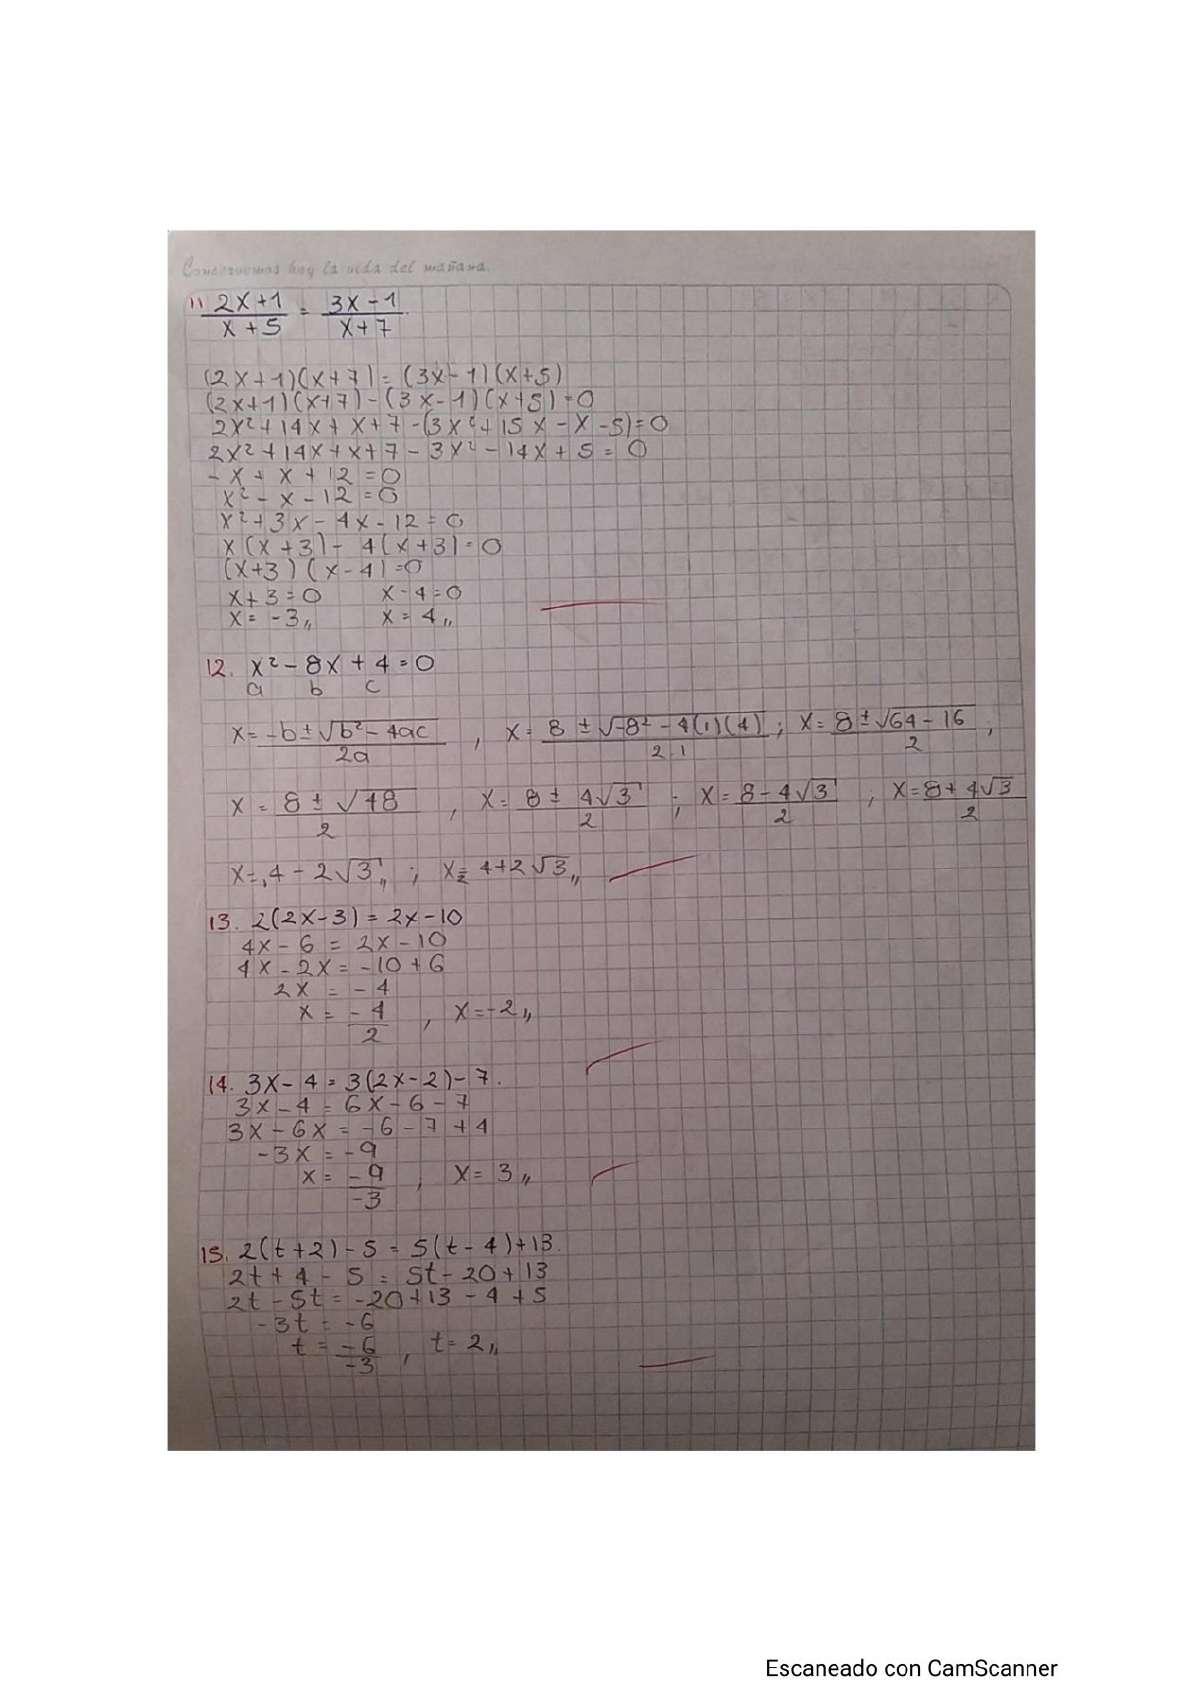 Conservemos hoy la vida del mañana.
11 2x+1/x+5 = 3x-1/x+7.
(2x+1)(x+7) = (3x-1)(x+5)
(2x+1)(x+7)-(3x-1)(x+5)=0
2x²+14x+x+7-(3x²+15x-x-5)=0
2x²+14x+x+7-3x²-14x+5=0
-x+x+12=0
x²-x-12=0
x²+3x-4x-12=0
x(x+3)-4(x+3)=0
(x+3)(x-4)=0
x+3=0 x-4=0
x=-3,, x=4,,
12. x²-8x+4=0
a b c
x= -b±√b²-4ac/2a , x= 8±√-8²-4(1)(4)/2.1 ; x= 8±√64-16/2 ,
x= 8±√48/2 , x= 8±4√3/2 ; x= 8-4√3/2 , x= 8+4√3/2
x=₁4-2√3,, ; x₂= 4+2√3,,
13. 2(2x-3)=2x-10
4x-6=2x-10
4x-2x=-10+6
2x=-4
x= -4/2 , x=-2,,
14. 3x-4=3(2x-2)-7.
3x-4=6x-6-7
3x-6x=-6-7+4
-3x=-9
x= -9/-3 , x=3,,
15. 2(t+2)-5=5(t-4)+13.
2t+4-5=5t-20+13
2t-5t=-20+13-4+5
-3t=-6
t= -6/-3 , t=2,,
Escaneado con CamScanner